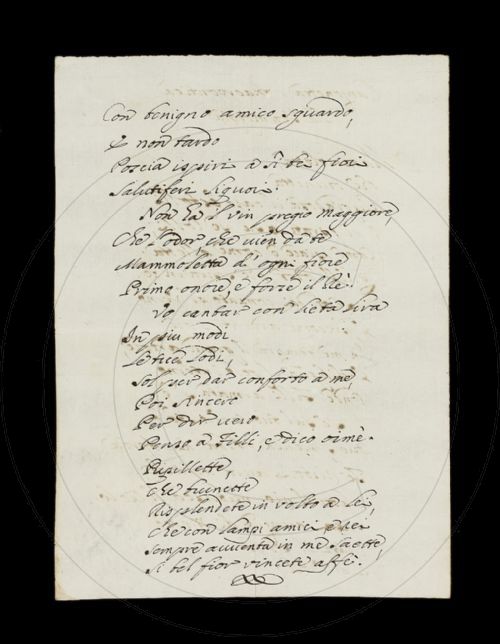 Con benigno amico sguardo,
E non tardo
Poscia ispiri a sì bei fiori
Salutiferi liquori.
Non ha 'l vin pregio maggiore,
Che l'odor che vien da te
Mammoletta d'ogni fiore
Primo onore, e forse il Rè.
Vo cantar con lieta lira
In piu modi
Le tue lodi,
Sol per dar conforto a me,
Poi
Per dir vero
Penso a Filli, e dico oimè.
Pupillette,
Che brunette
Risplendete in volto a lei,
Che con lampi amici e rei
Sempre avventa in me saette,
Si bel fior vincete affè.